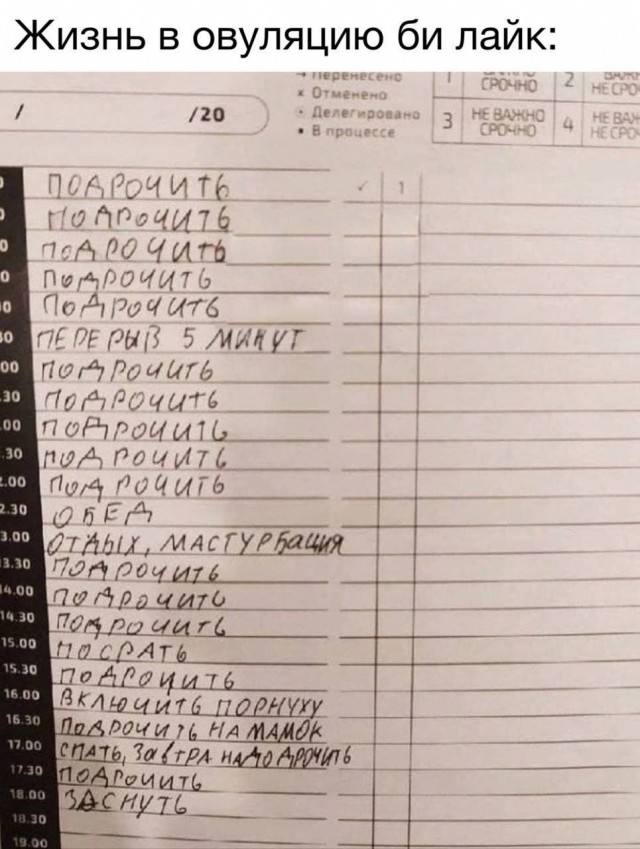 Жизнь в овуляцию би лайк:
→ Перенесено
× Отменено
Делегировано
• В процессе
1 СРОЧНО 2
3 НЕ ВАЖНО СРОЧНО 4
/ /20
ПОДРОЧИТЬ ✓ 1
ПОДРОЧИТЬ
ПОДРОЧИТЬ
ПОДРОЧИТЬ
ПОДРОЧИТЬ
ПЕРЕРЫВ 5 МИНУТ
ПОДРОЧИТЬ
ПОДРОЧИТЬ
ПОДРОЧИТЬ
ПОДРОЧИТЬ
ПОДРОЧИТЬ
ОБЕД
ОТДЫХ, МАСТУРБАЦИЯ
ПОДРОЧИТЬ
14.00 ПОДРОЧИТЬ
14.30 ПОДРОЧИТЬ
15.00 ПОСРАТЬ
15.30 ПОДРОЧИТЬ
16.00 ВКЛЮЧИТЬ ПОРНУХУ
16.30 ПОДРОЧИТЬ НА МАМОК
17.00 СПАТЬ, ЗАВТРА НАДО ДРОЧИТЬ
17.30 ПОДРОЧИТЬ
18.00 ЗАСНУТЬ
18.30
19.00